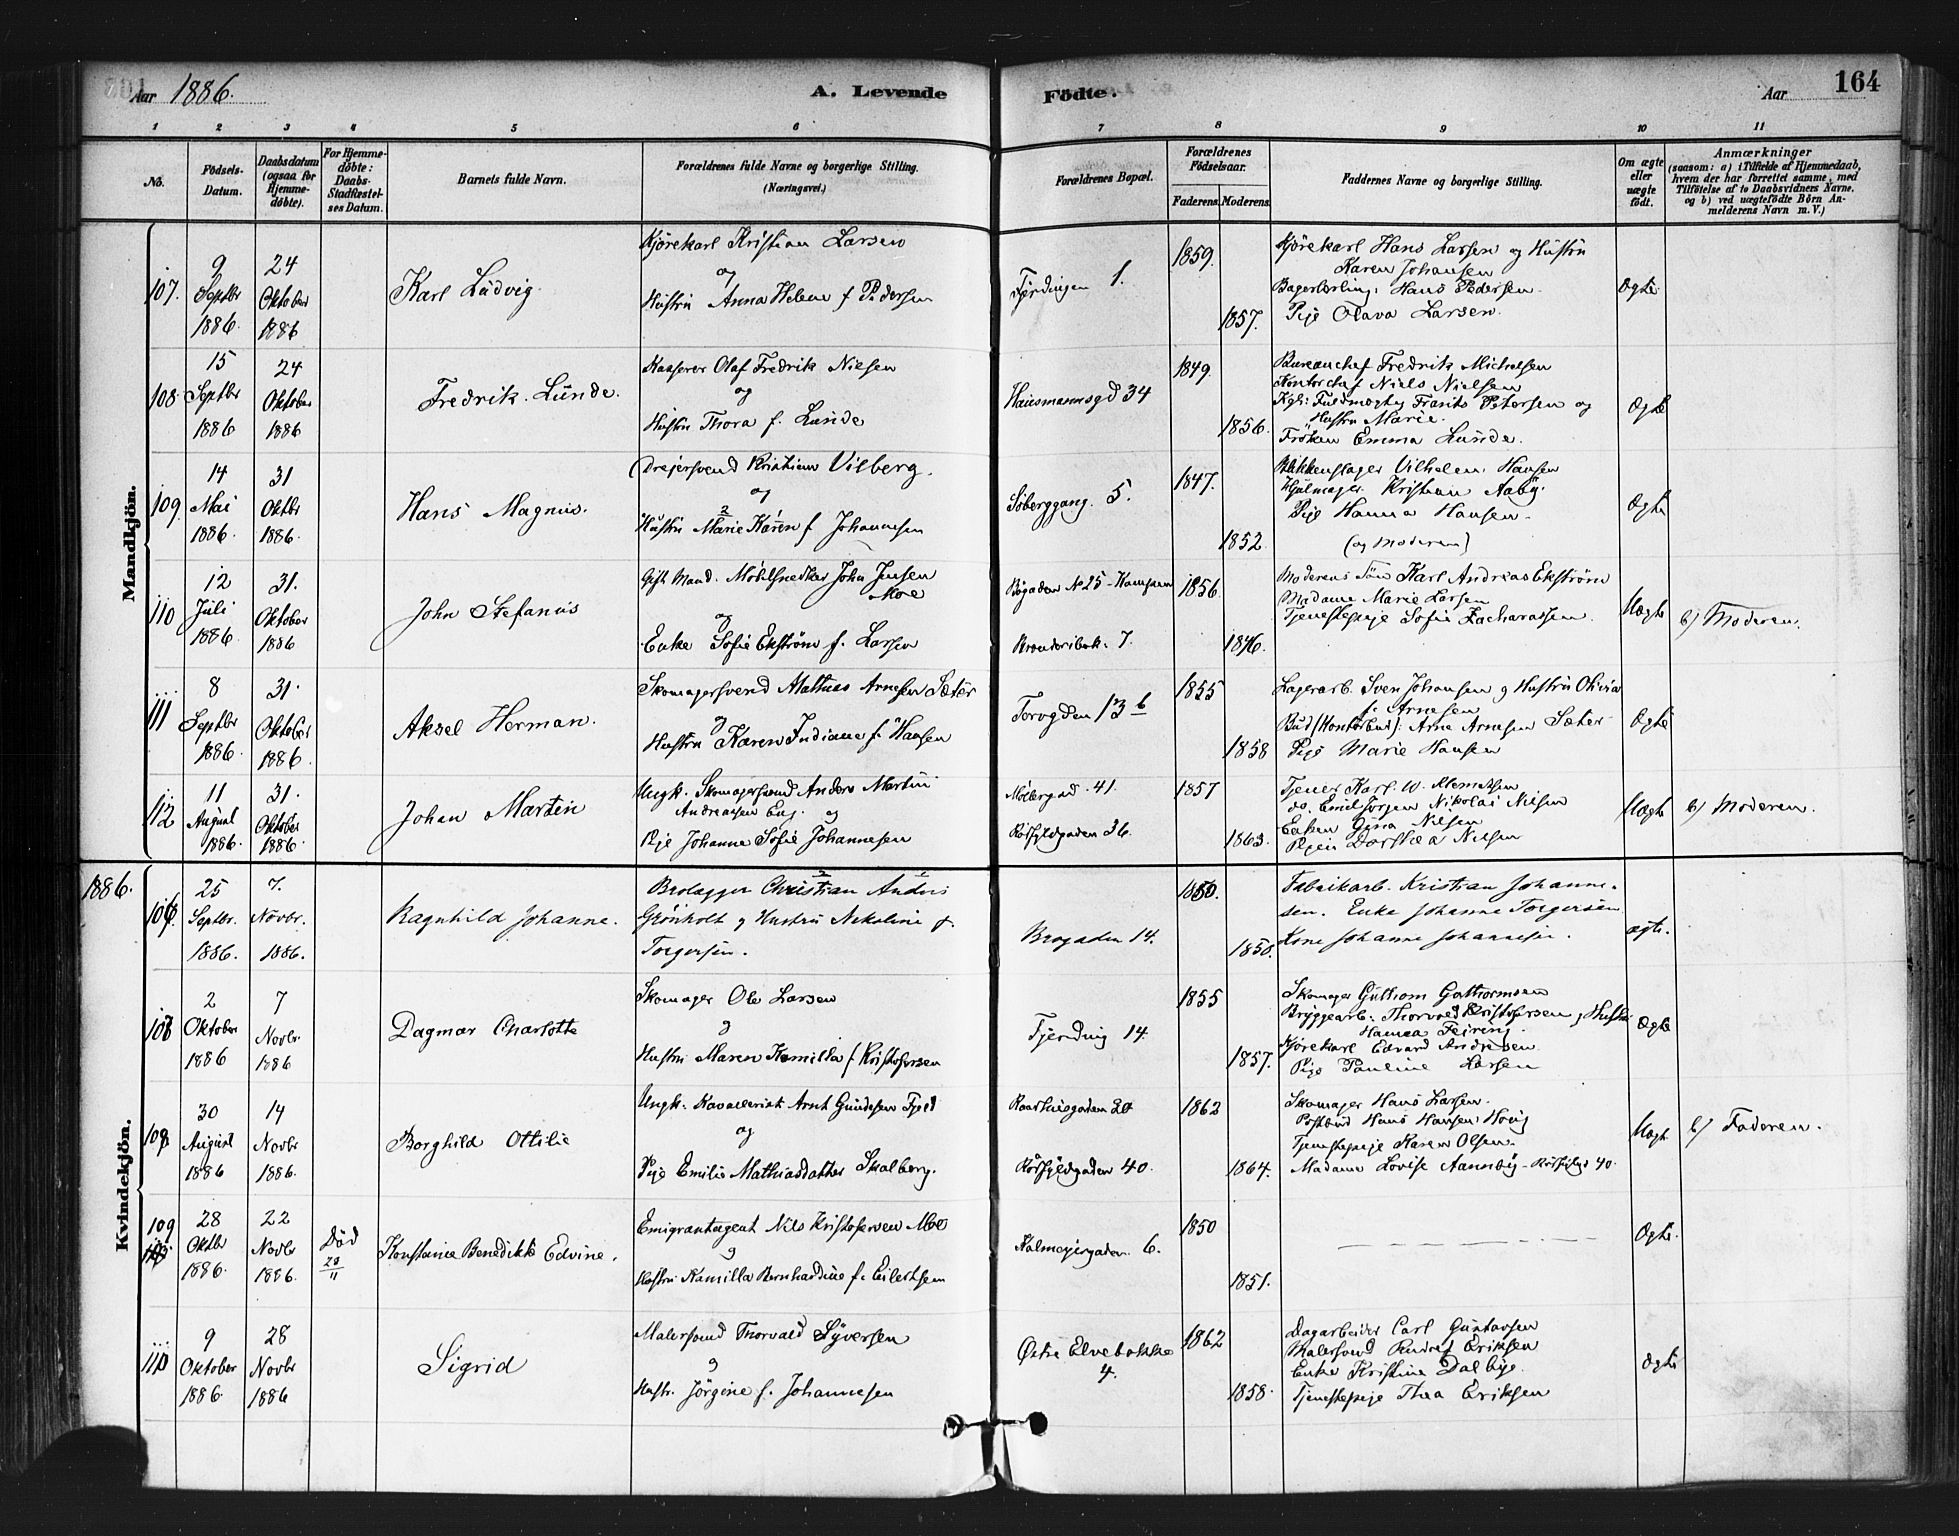 Aar 1886. A. Levende Födte. Aar 164
1 2 3 4 5 6 7 8 9 10 11
No. Födsels-Datum. Daabsdatum (ogsaa for Hjemme-döbte). For Hjemme-döbte: Daabs-Stadfæstel-ses Datum. Barnets fulde Navn. Forældrenes fulde Navne og borgerlige Stilling. (Næringsvei.) Forældrenes Bopæl. Forældrenes Födselsaar. Faderens. Moderens. Faddernes Navne og borgerlige Stilling. Om ægte eller uægte födt. Anmærkninger (saasom: a) i Tilfælde af Hjemmedaab, hvem der har forrettet samme, med Tilföielse af to Daabsvidners Navne, og b) ved uægtefödte Börn An-melderens Navn m. V.)
Mandkjön.
107. 9 Septbr 1886. 24 Oktober 1886
Karl Ludvig.
Kjörekarl Kristian Larsen
og
Hustru Anna Helene f. Pedersen
Fjerdingen 1.
1859.
1857.
Kjörekarl Hans Larsen og Hustru
Karen Johansen
Bagerlærling: Hans Pedersen.
Pige Olava Larsen.
Ægte
108. 15 Septbr 1886 24 Oktober 1886
Fredrik Lunde.
Kasserer Olaf Fredrik Nielsen
og
Hustru Thora f. Lunde
Hausmannsgd 34
1849.
1856.
Bureauchef Fredrik Michelsen
Kontorchef Niels Nielsen
Kgl: Fuldmægtig Frants Petersen og
Hustru Marie.
Fröken Emma Lunde.
Ægte
109. 14 Mai 1886. 31 Oktbr 1886.
Hans Magnus.
Drejersvend Kristian Vilberg.
og
Hustru Marie Karen f. Johannesen
Söberggang. 5.
1847.
1852.
Blikkenslager Vilhelm Hansen
Hjulmager Kristian Aaby.
Pige Hanna Hansen.
(og Moderen)
Ægte
110 12 Juli 1886. 31. Oktober 1886
John Stefanus
Gift Mand. Möbelsnedker John Jensen
Moe
og
Enke Sofie Ekström f. Larsen
Bögaden No 25 - Kampen
7.
1856
1846.
Moderens Sön Karl Andreas Ekström
Madame Marie Larsen
Tjenestepige Sofie Zachariassen.
Uægte
b) Moderen.
111 8 Septbr 1886. 31. Oktober 1886.
Aksel Herman.
Skomagersvend Mathias Arnesen Sæter
og
Hustru Karen Indiane f. Hansen
Torvgden 13 b
1855
1858
Lagerarb. Sven Johansen og Hustru Olivia
f. Arnesen
Bud (Kontorbud): Arne Arnesen Sæter
Pige Marie Hansen
Ægte
112 11 August 1886. 31. Oktober 1886.
Johan Martin
Ungk. Skomagersvend Anders Martin
Andreasen Eng. og
Pige Johanne Sofie Johannesen
Möllergad. 41.
36.
1857
1863.
Tjener Karl W. Klemetsen
do. Emil Jörgen Nikolai Nilsen
Enken Gina Nilsen
Pigen Dorthea Nilsen
Uægte
b) Moderen.
1886.
Kvindekjön.
106. 25 Septbr. 1886. 7. Novbr. 1886.
Ragnhild Johanne.
Brolægger Christian Anders
Grönholt og Hustru Nikoline f.
Torgersen.
Brogaden 14.
1850
1850.
Fabrikarb. Kristian Johanne-
sen. Enke Johanne Torgersen
Kone Johanne Johannesen.
ægte.
107 2 Oktober 1886 7 Novbr 1886
Dagmar Charlotte
Skomager Ole Larsen
og
Hustru Maren Kamilla f. Kristofersen
Fjerding 14.
1855
1857.
Skomager Guthorm Guthormsen
Bryggearb. Thorvald Kristofersen og Hustru
Hanna Feiring
Kjörekarl Edvard Andresen
Pige Pauline Larsen
Ægte
108 30 August 1886 14 Novbr 1886.
Borghild Ottilie
Ungk. Kavallerist Arnt Gundesen Fjeld
og
Pige Emilie Mathiasdatter Skalberg.
20
40.
1862
1864.
Skomager Hans Larsen.
Postbud Hans Hansen
Tjenestepige Karen Olsen.
Madame Lovise 40.
Uægte
b) Faderen.
109 28 Oktbr 1886. 22 Novbr 1886.
Död 29/11
Konstance Benedikte Edvine.
Emigrantagent Nils Kristofersen Moe
og
Hustru Kamilla Bernhardine f. Eilertsen
Kalmeyergaden 6.
1850
1851.
Ægte.
110 9 Oktober 1886. 28 Novbr 1886
Sigrid
Malersvend Thorvald Syversen
og
Hustr. Jörgine f. Johannesen
Östre Elvebakke
4.
1862
1858.
Dagarbeider Carl Gustavsen
Malersvend Andreas Eriksen
Enke Kristine Dalbye.
Tjenestepige Thea Eriksen
Ægte